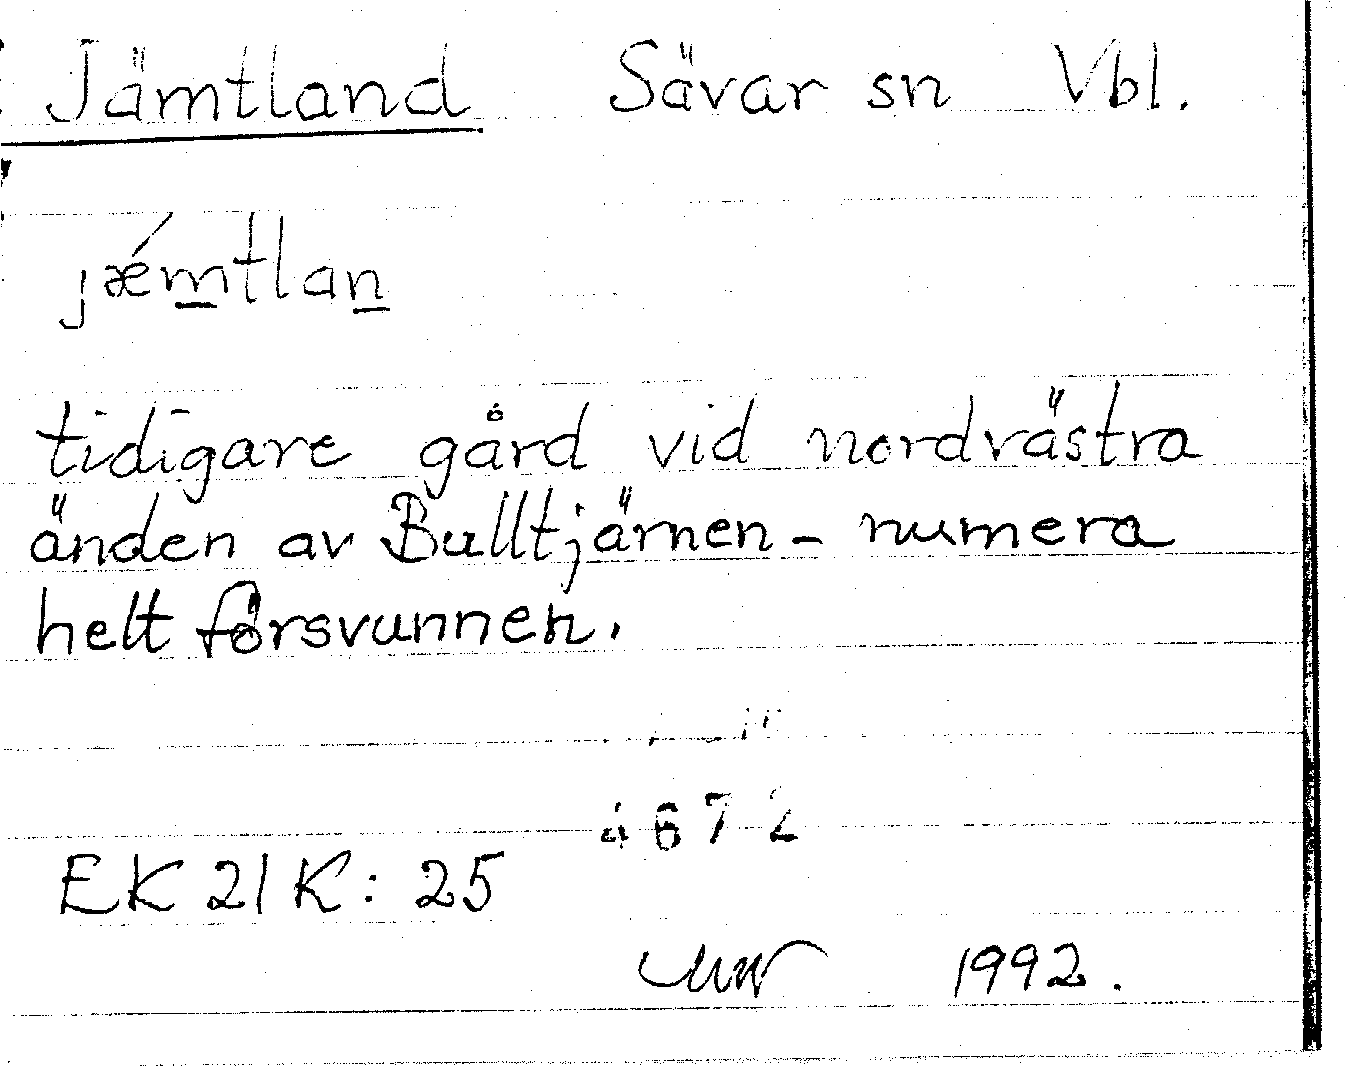 Jämtland Sävar sn Vbl.
jǽm̲tlan̲
tidigare gård vid nordvästra
änden av Bulltjärnen - numera
helt försvunnen.
4672
EK 21K: 25
1992.